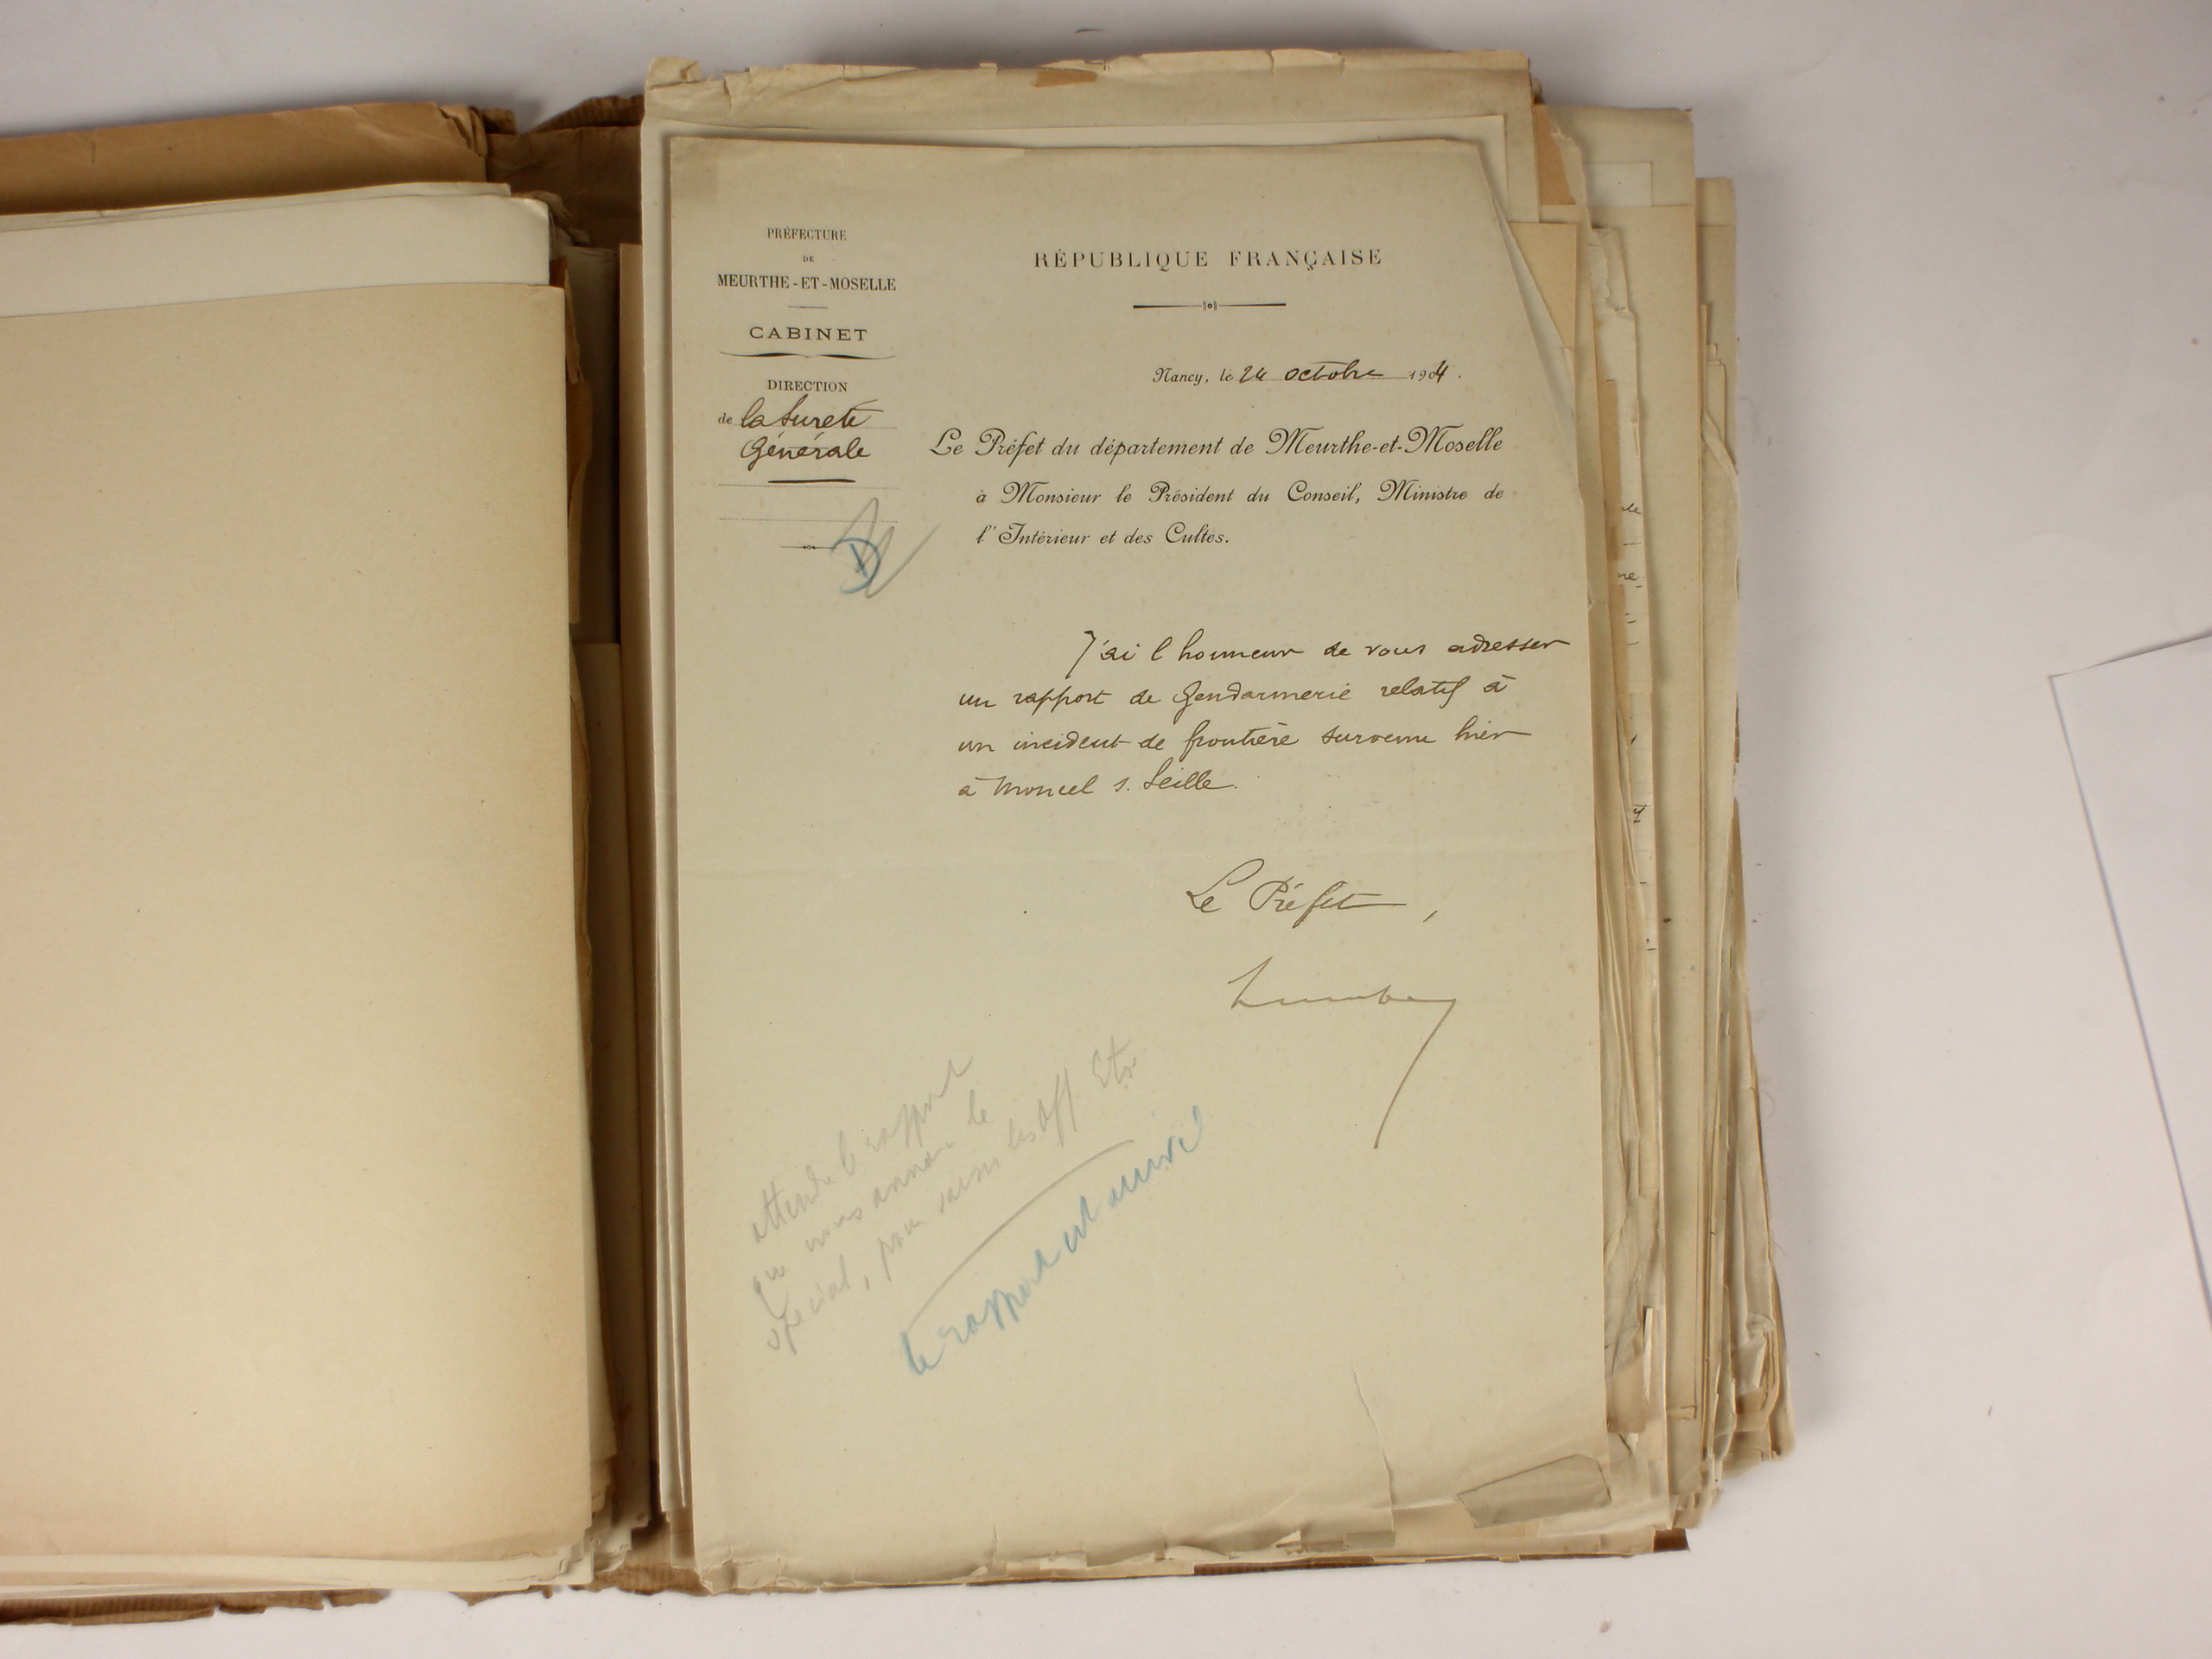 PRÉFECTURE
DE
MEURTHE-ET-MOSELLE
CABINET
DIRECTION
de la Sureté
Générale
RÉPUBLIQUE FRANÇAISE
Nancy, le 24 octobre 1904.
Le Préfet du département de Meurthe-et-Moselle
à Monsieur le Président du Conseil, Ministre de
l'Intérieur et des Cultes.
J'ai l'honneur de vous adresser
un rapport de Gendarmerie relatif à
un incident de frontière survenu hier
à Moncel s. Seille.
Le Préfet,
attendre le rapport
nous le
spécial, pour saisir les Aff Etr
le rapport est arrivé